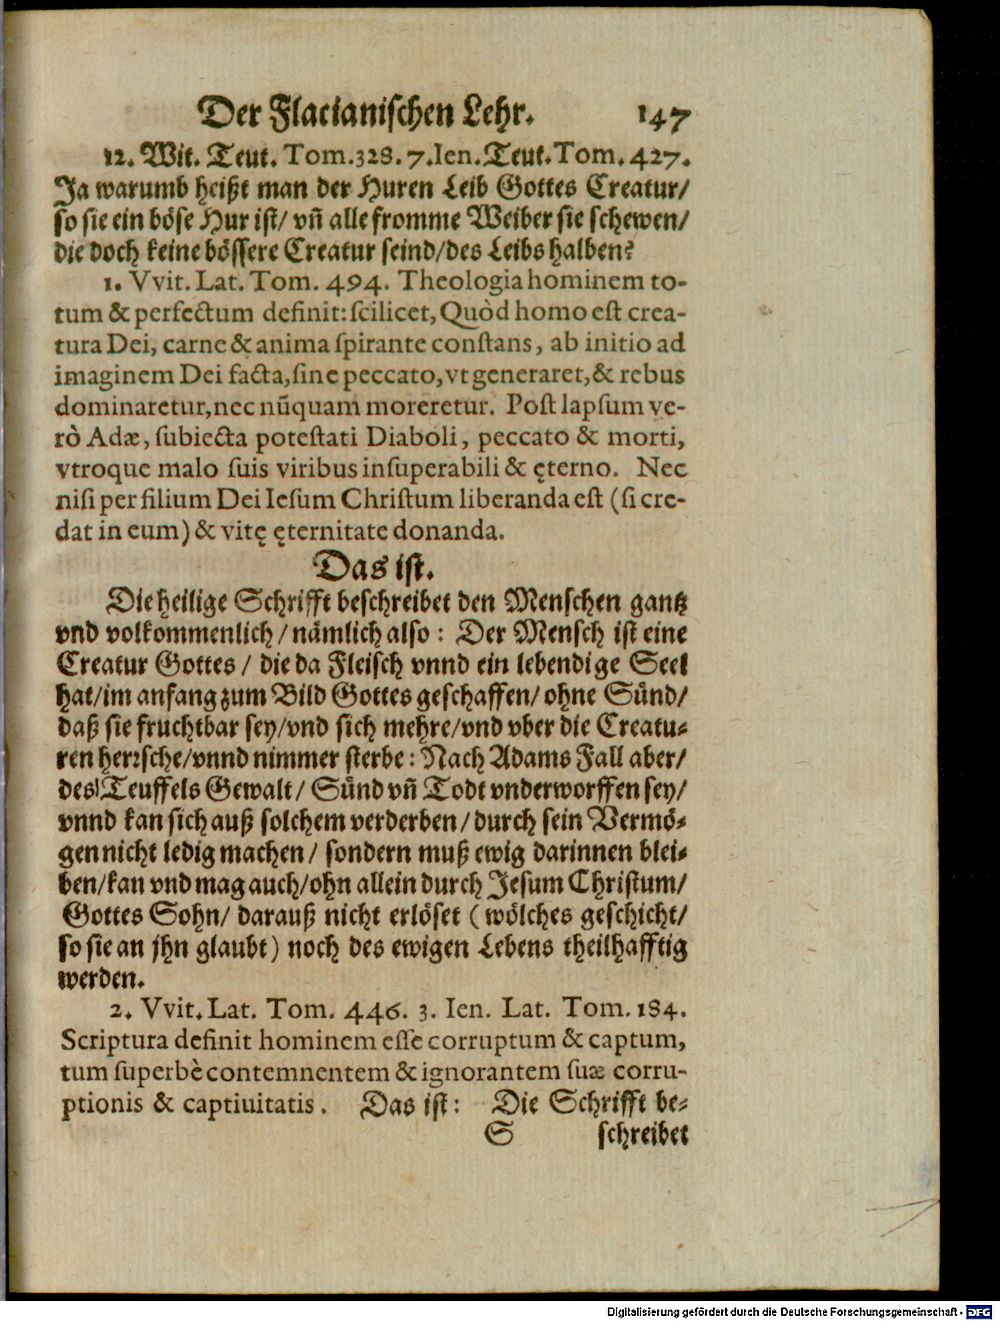 Der Flacianischen Lehr. 147
12. Wit. Teut. Tom. 328. 7. Ien. Teut. Tom. 427.
Ja warumb heißt man der Huren Leib Gottes Creatur/
so sie ein böse Hur ist/ vñ alle fromme Weiber sie schewen/
die doch keine bössere Creatur seind/des Leibs halben?
1. Vvit. Lat. Tom. 494. Theologia hominem to-
tum & perfectum definit: scilicet, Quòd homo est crea-
tura Dei, carne & anima spirante constans, ab initio ad
imaginem Dei facta, sine peccato, vt generaret, & rebus
dominaretur, nec nũquam moreretur. Post lapsum ve-
rò Adæ, subiecta potestati Diaboli, peccato & morti,
vtroque malo suis viribus insuperabili & ęterno. Nec
nisi per filium Dei Iesum Christum liberanda est (si cre-
dat in eum) & vitę ęternitate donanda.
Das ist.
Die heilige Schrifft beschreibet den Menschen gantz
vnd volkommenlich/ nämlich also: Der Mensch ist eine
Creatur Gottes/ die da Fleisch vnnd ein lebendige Seel
hat/im anfang zum Bild Gottes geschaffen/ ohne Sünd/
daß sie fruchtbar sey/vnd sich mehre/vnd vber die Creatu-
ren herrsche/vnnd nimmer sterbe: Nach Adams Fall aber/
des Teuffels Gewalt/ Sünd vñ Todt vnderworffen sey/
vnnd kan sich auß solchem verderben/ durch sein Vermö-
gen nicht ledig machen/ sondern muß ewig darinnen blei-
ben/kan vnd mag auch/ohn allein durch Jesum Christum/
Gottes Sohn/ darauß nicht erlöset (wölches geschicht/
so sie an jhn glaubt) noch des ewigen Lebens theilhafftig
werden.
2. Vvit. Lat. Tom. 446. 3. Ien. Lat. Tom. 184.
Scriptura definit hominem esse corruptum & captum,
tum superbè contemnentem & ignorantem suæ corru-
ptionis & captiuitatis. Das ist: Die Schrifft be-
S schreibet
Digitalisierung gefördert durch die Deutsche Forschungsgemeinschaft - DFG